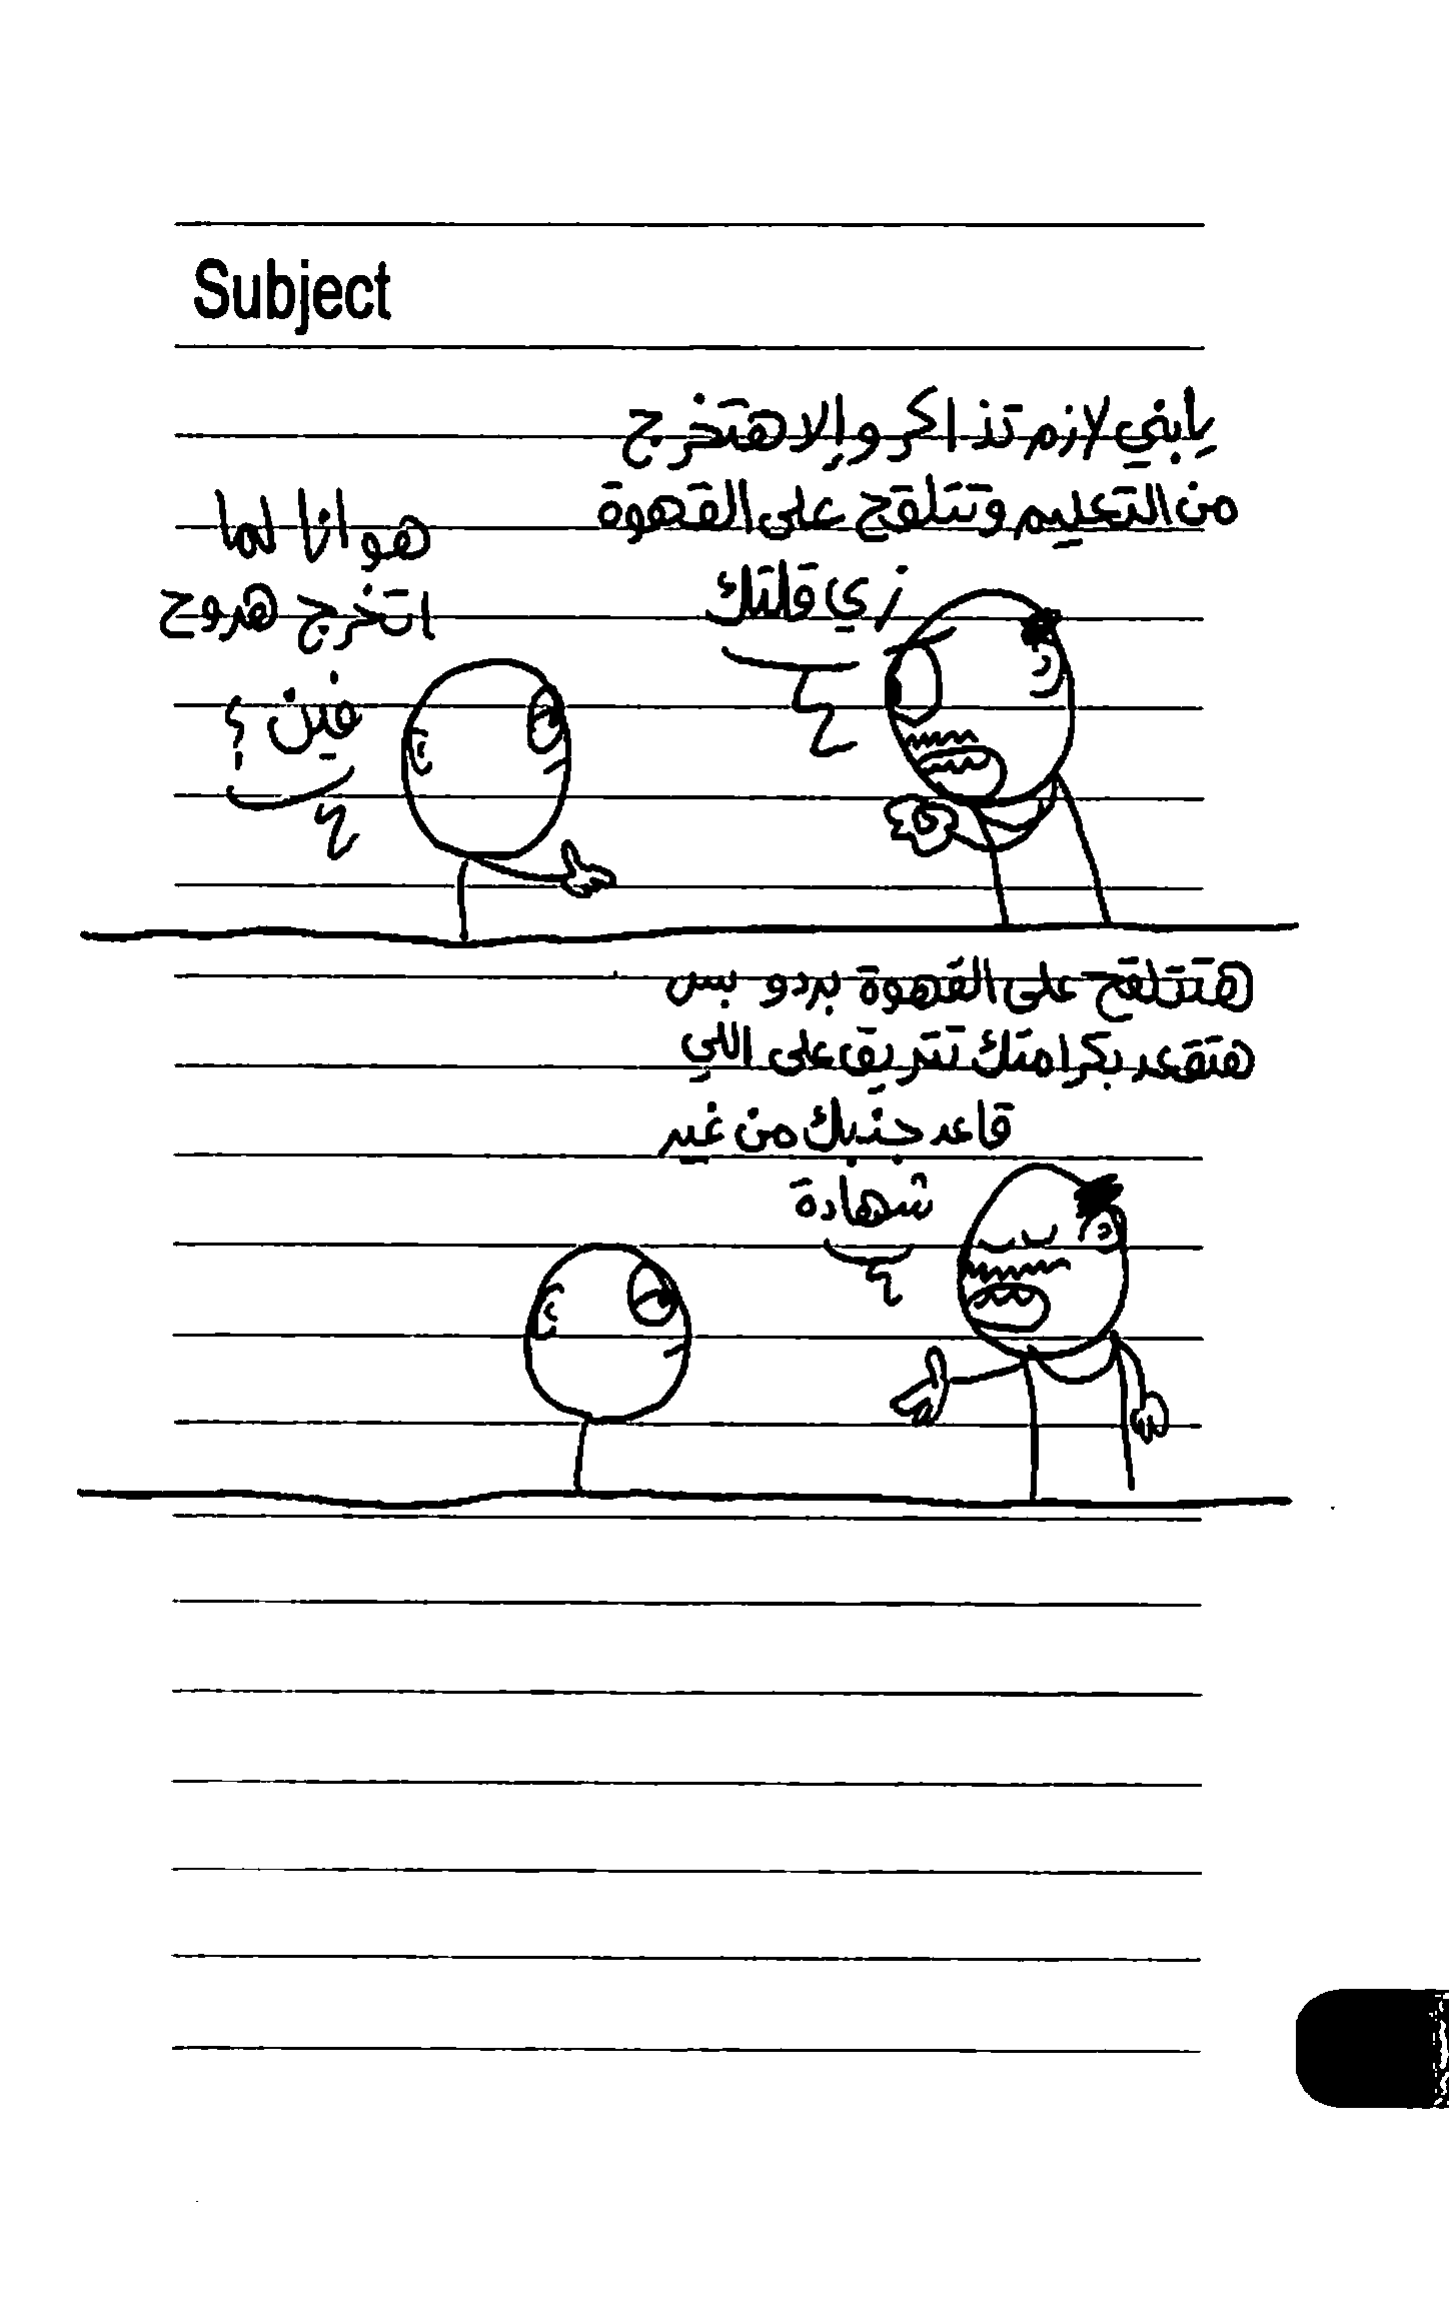 Subject
يابني لازم تذاكر وإلا هتخرج
من التعليم وتتلقح على القهوة
زي قلتلك
هو انا لما
اتخرج هروح
فين ؟
هتتلقح على القهوة بردو بس
هتقعد بكرامتك تتريق على اللي
قاعد جنبك من غير
شهادة